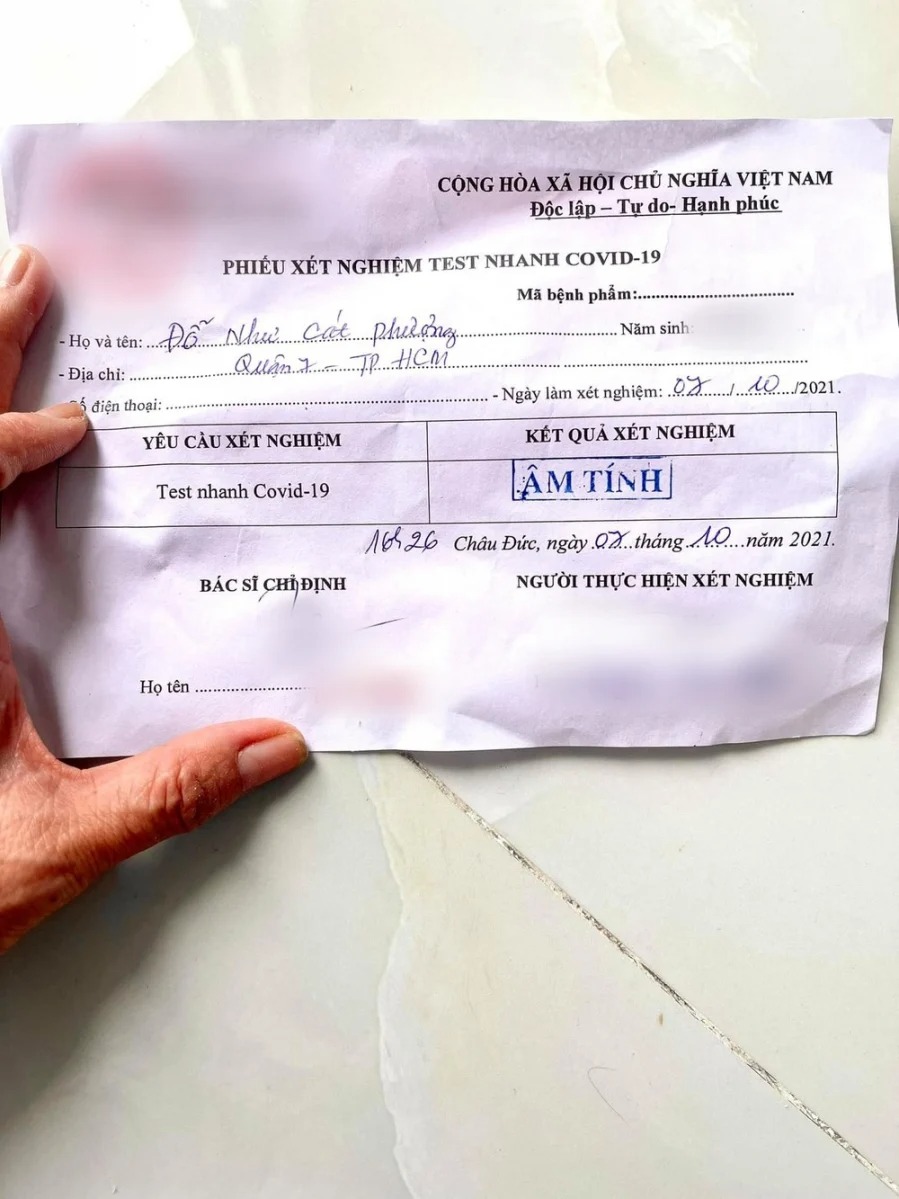 CỘNG HÒA XÃ HỘI CHỦ NGHĨA VIỆT NAM
Độc lập – Tự do- Hạnh phúc
PHIẾU XÉT NGHIỆM TEST NHANH COVID-19
Mã bệnh phẩm:..............................
- Họ và tên: Đỗ Như Cát Phượng .................. Năm sinh
- Địa chỉ: Quận 7 – TP HCM
Số điện thoại: .............................. - Ngày làm xét nghiệm: 07 / 10 /2021.
YÊU CẦU XÉT NGHIỆM KẾT QUẢ XÉT NGHIỆM
Test nhanh Covid-19 ÂM TÍNH
16h26 Châu Đức, ngày 07 tháng 10 năm 2021.
BÁC SĨ CHỈ ĐỊNH NGƯỜI THỰC HIỆN XÉT NGHIỆM
Họ tên ........................